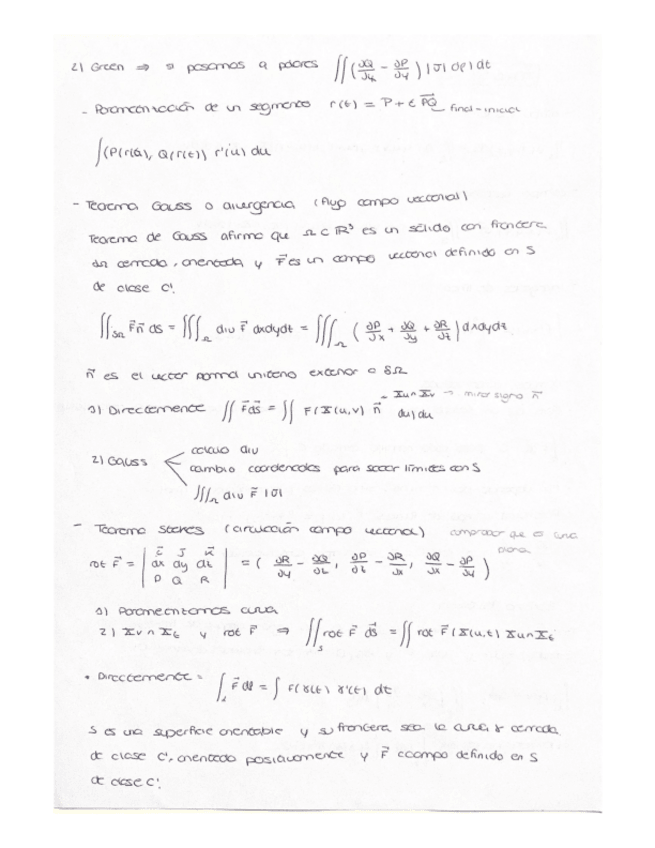 2) Green ⇒ si pasamos a polares ∬(∂Q/∂x - ∂P/∂y) |J| dρ dt
- Parametrización de un segmento r(t) = P + t PQ⃗ final-inicial
∫(P(r(t)), Q(r(t)) r'(u) du
- Teorema Gauss o divergencia (flujo campo vectorial)
Teorema de Gauss afirma que Ω ⊂ ℝ³ es un sólido con frontera
∂Ω cerrada, orientada y F⃗ es un campo vectorial definido en S
de clase C¹.
∬_∂Ω F⃗ n⃗ dS = ∭_Ω div F⃗ dxdydz = ∭_Ω (∂P/∂x + ∂Q/∂y + ∂R/∂z) dxdydz
n⃗ es el vector normal unitario exterior a ∂Ω
1) Directamente ∬ F⃗ dS⃗ = ∬ F(X(u,v) n⃗ du dv
Xu∧Xv → mirar signo n⃗
2) Gauss
calculo div
cambio coordenadas para sacar límites con S
∭_Ω div F⃗ |J|
- Teorema Stokes (circulación campo vectorial) comprobar que es curva
plana
rot F⃗ = | i⃗ j⃗ k⃗ / dx dy dz / P Q R | = (∂R/∂y - ∂Q/∂z, ∂P/∂z - ∂R/∂x, ∂Q/∂x - ∂P/∂y)
1) Parametrizamos curva
2) Xu∧Xt y rot F⃗ ⇒ ∬_S rot F⃗ dS⃗ = ∬ rot F⃗ (X(u,t) Xu∧Xt
• Directamente = ∫ F⃗ dl = ∫ F(γ(t) γ'(t) dt
S es una superficie orientable y su frontera sea la curva γ cerrada
de clase C¹, orientada positivamente y F⃗ campo definido en S
de clase C¹.